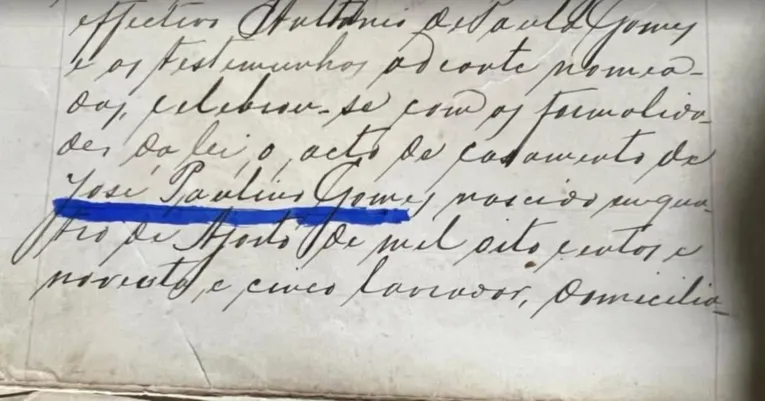 effectivo Antonio de Paula Gomes
e as testemunhas adeante nomea-
das, celebrou-se com as formalida-
des da lei, o acto de casamento de
José Paulino Gomes, nascido em qua-
tro de Agosto de mil oito centos e
noventa e cinco lavrador, domicilia-